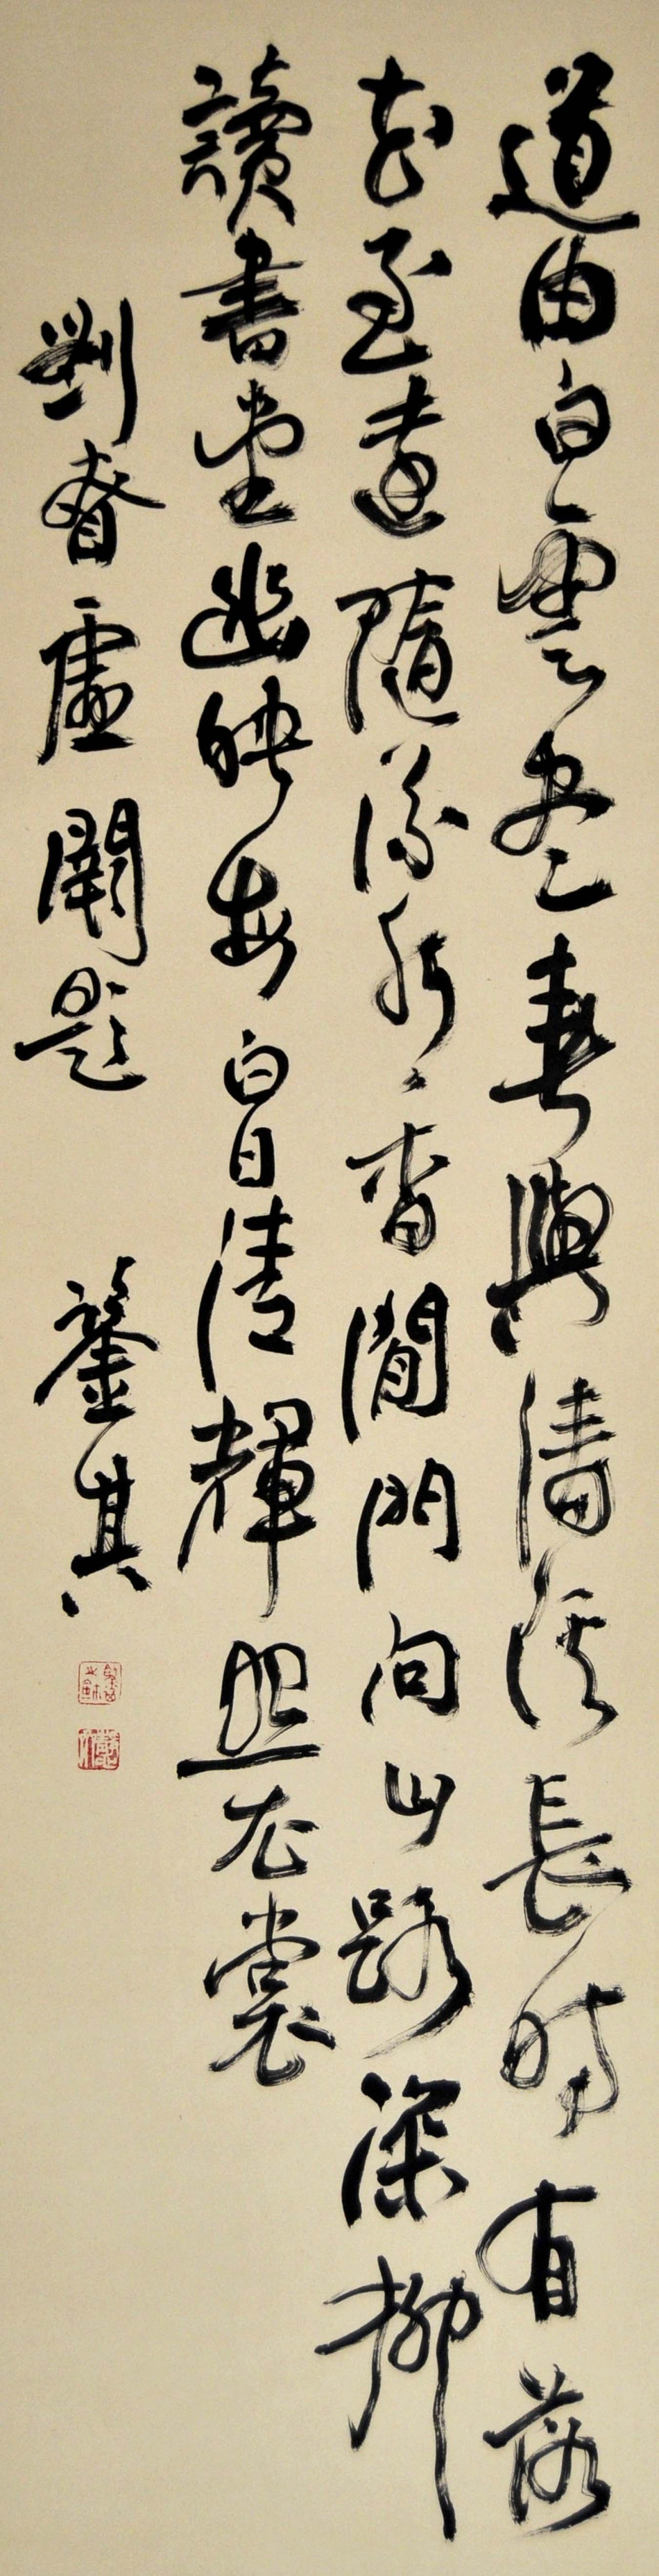 道由白雲盡春與清溪長時有落
花至遠隨流水香閒門向山路深柳
讀書堂幽映每白日清輝照衣裳
劉昚虛闕題 鋻其